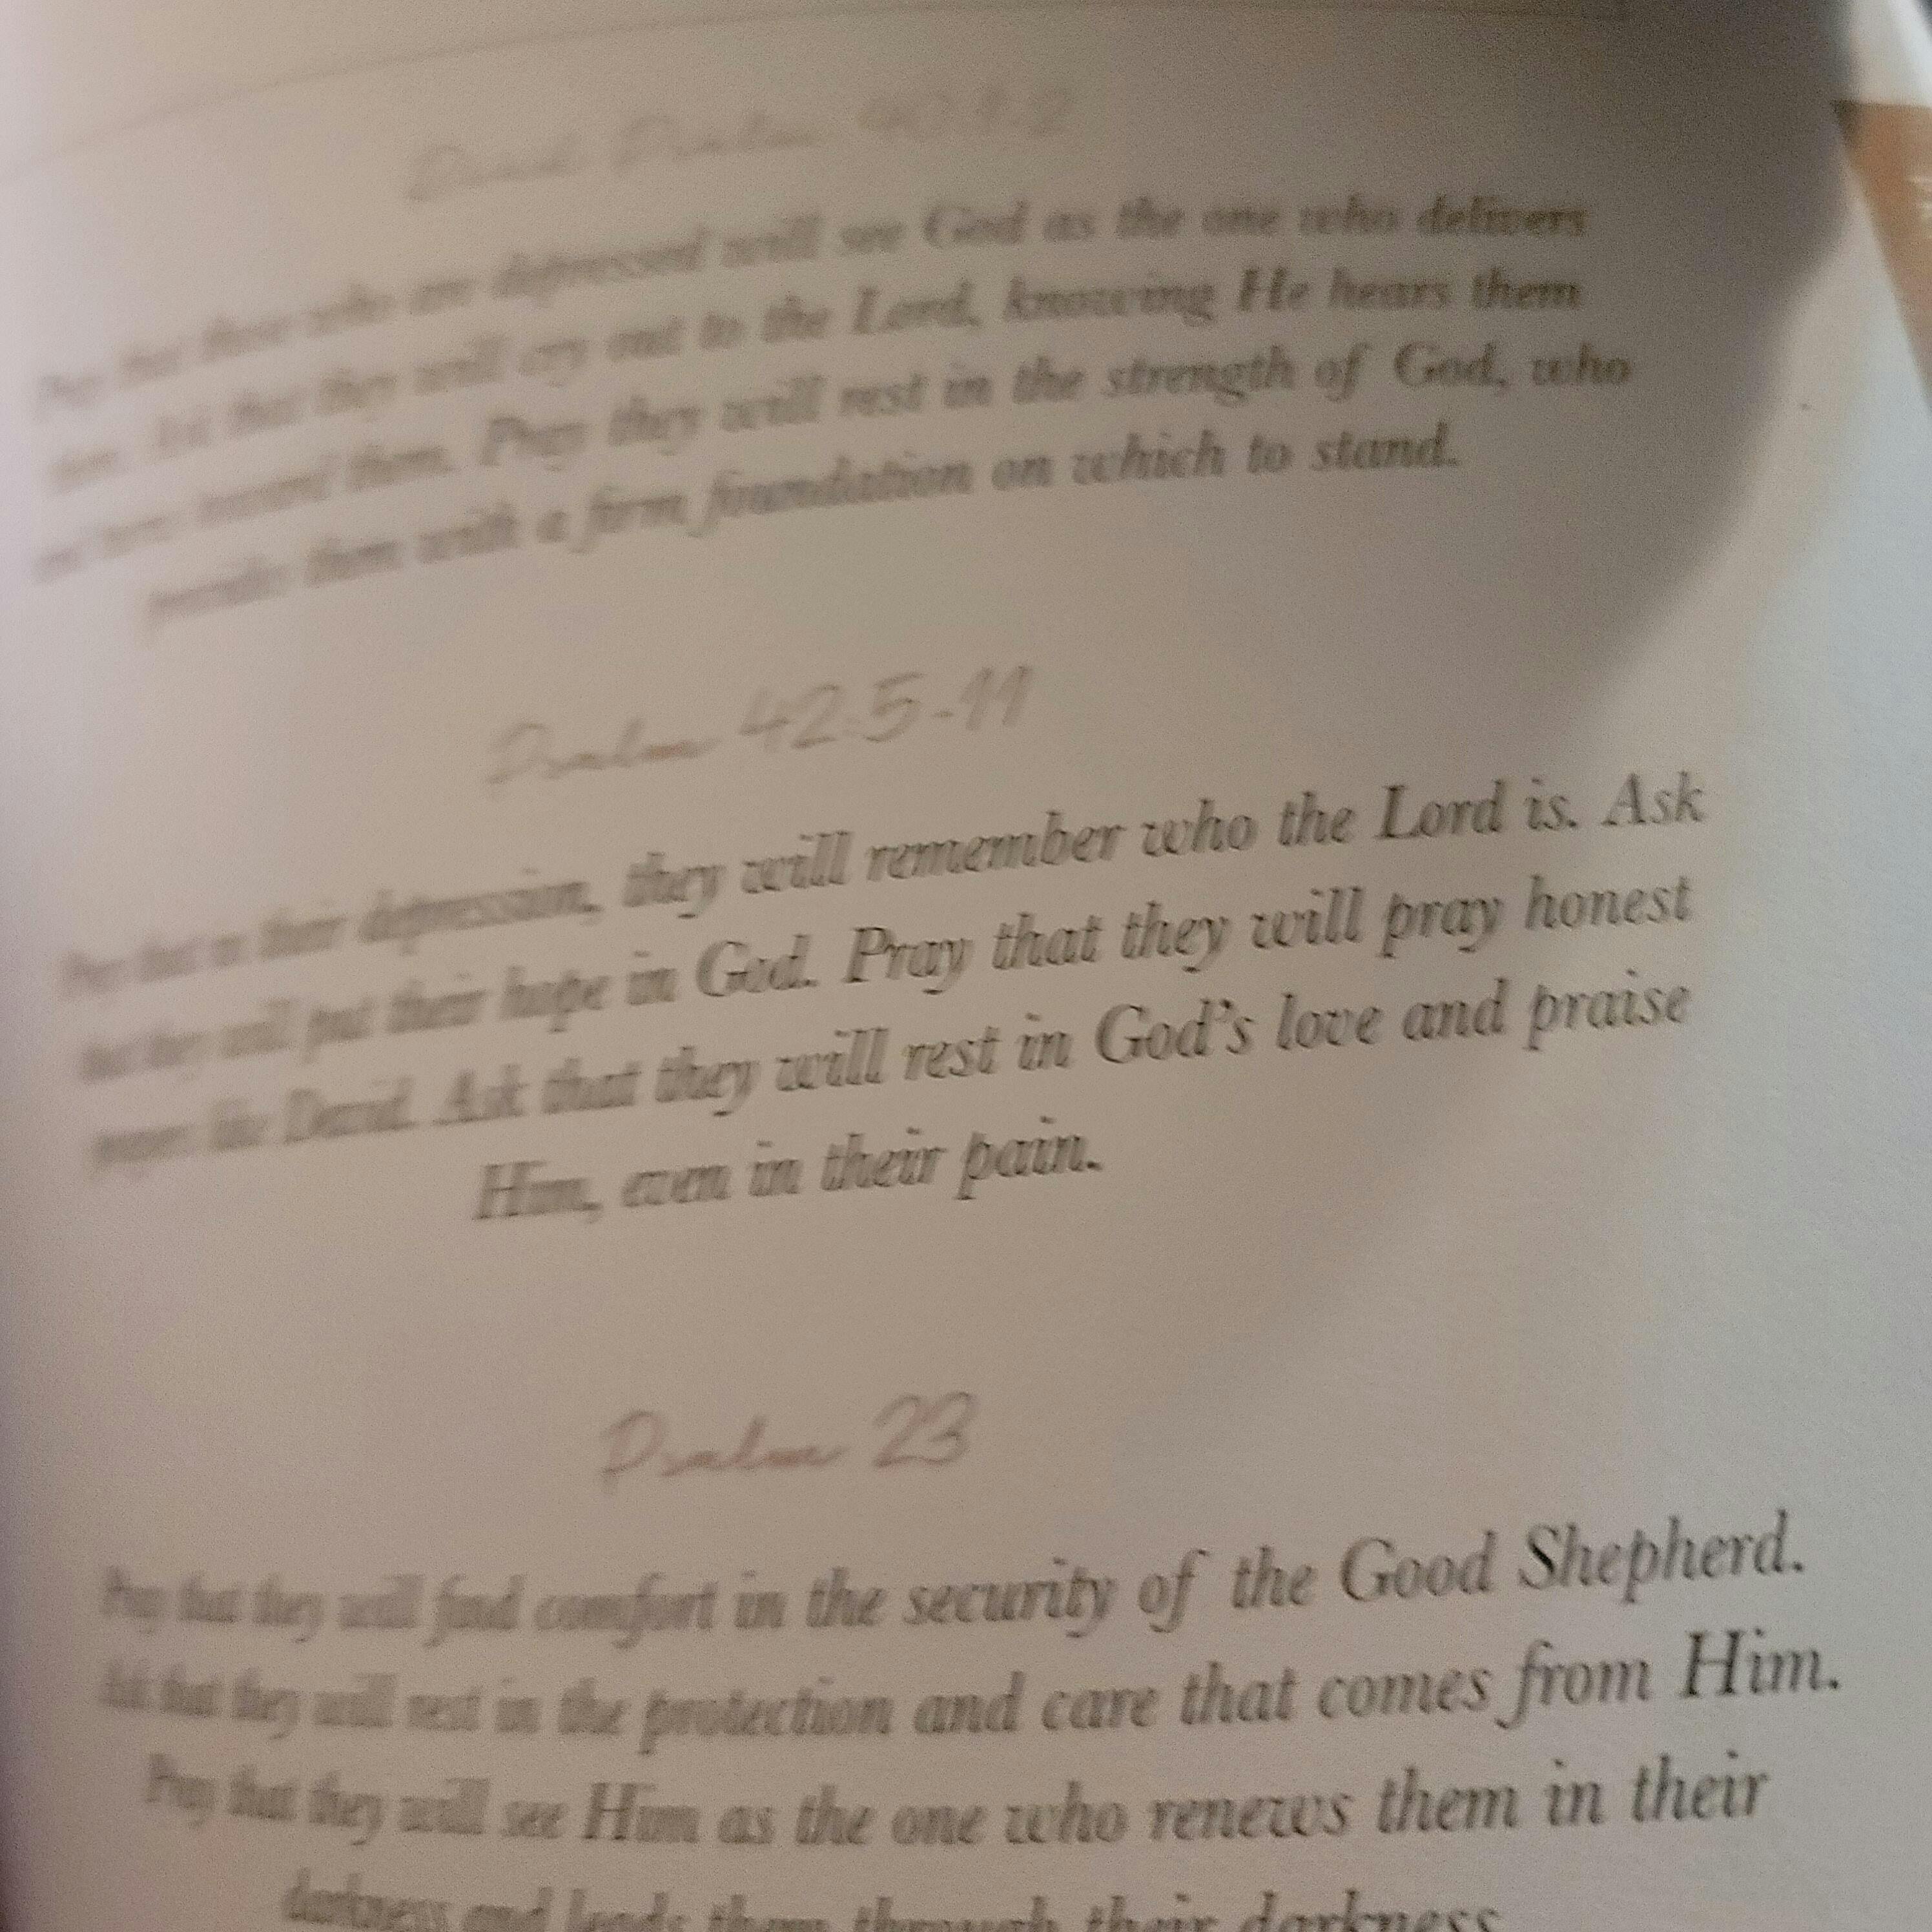 David Psalm 40:1-2
Pray that those who are depressed will see God as the one who delivers
them. Ask that they will cry out to the Lord, knowing He hears them
and turns toward them. Pray they will rest in the strength of God, who
provides them with a firm foundation on which to stand.
Psalm 42:5-11
Pray that in their depression, they will remember who the Lord is. Ask
that they will put their hope in God. Pray that they will pray honest
prayers like David. Ask that they will rest in God's love and praise
Him, even in their pain.
Psalm 23
Pray that they will find comfort in the security of the Good Shepherd.
Ask that they will rest in the protection and care that comes from Him.
Pray that they will see Him as the one who renews them in their
darkness and leads them through their darkness